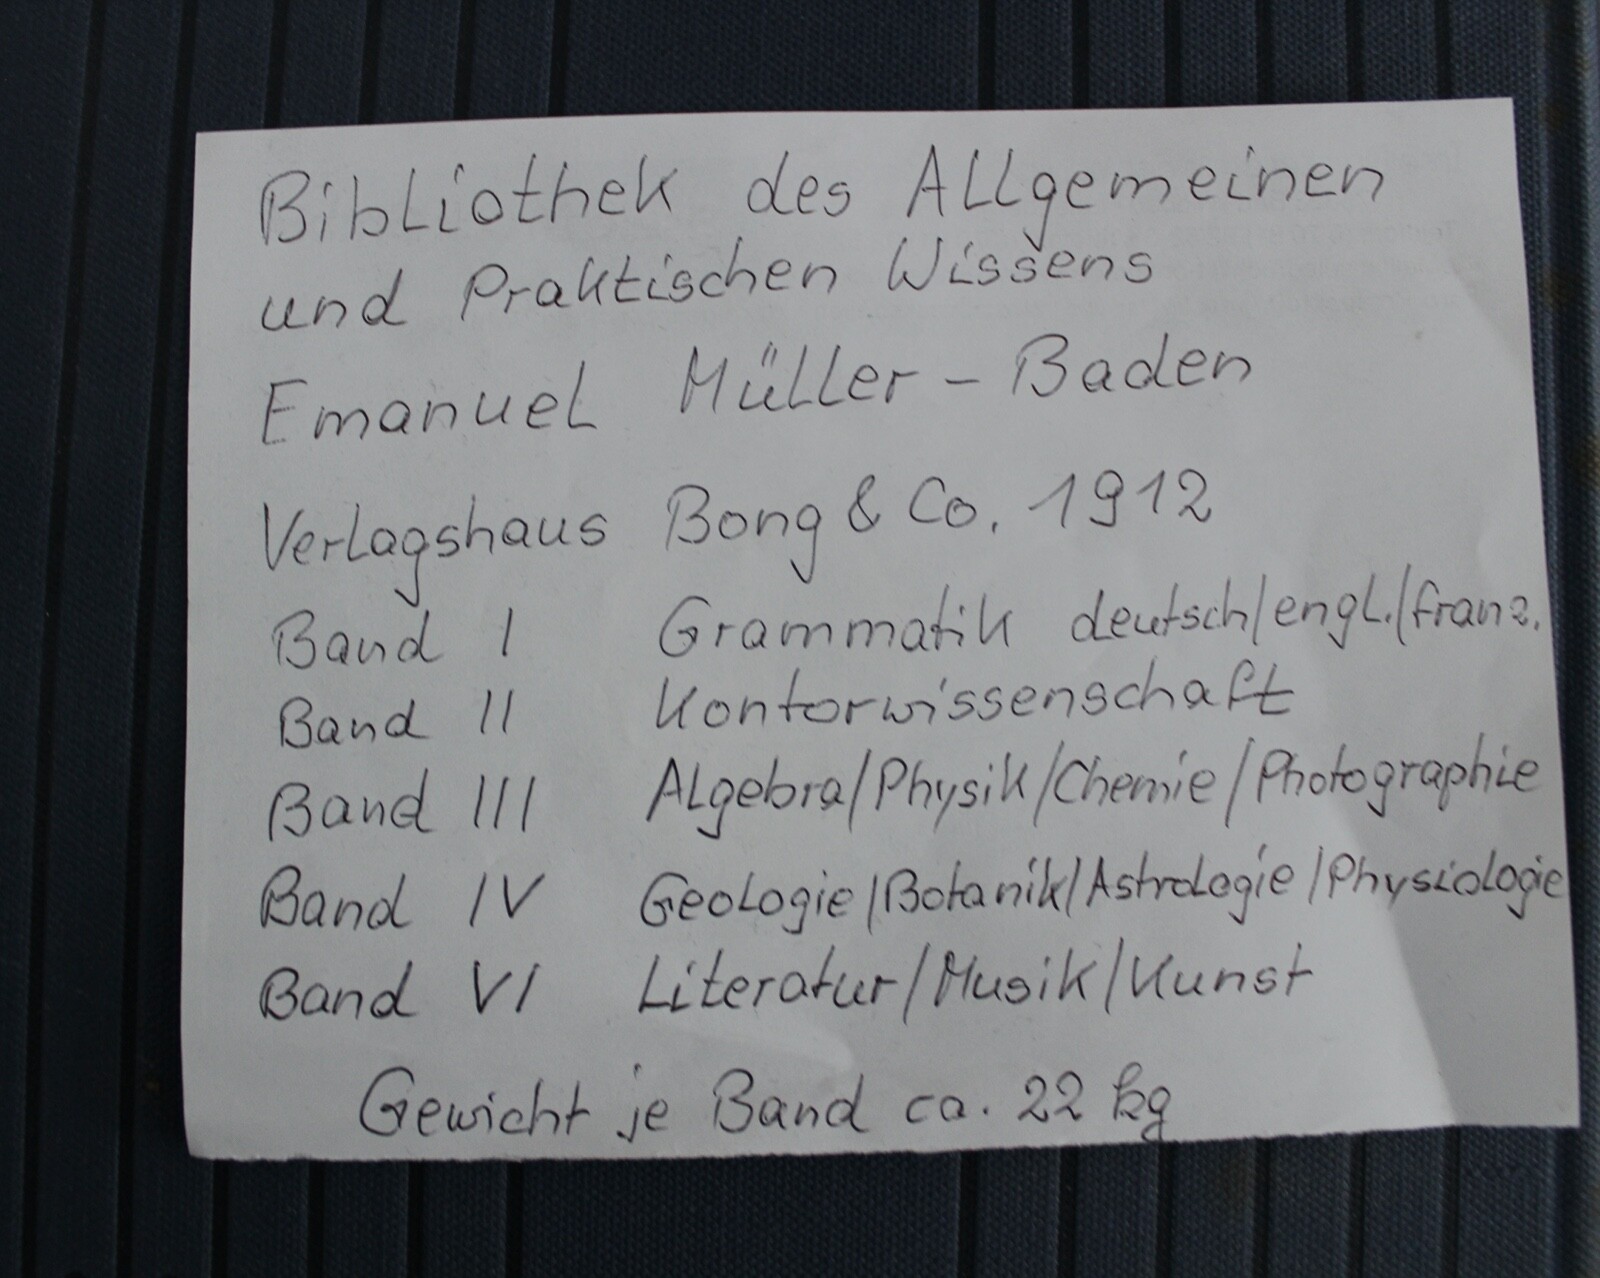 Bibliothek des Allgemeinen
und Praktischen Wissens
Emanuel Müller-Baden
Verlagshaus Bong & Co. 1912
Band I Grammatik deutsch/engl./franz.
Band II Kontorwissenschaft
Band III Algebra/Physik/Chemie/Photographie
Band IV Geologie/Botanik/Astrologie/Physiologie
Band VI Literatur/Musik/Kunst
Gewicht je Band ca. 22 kg